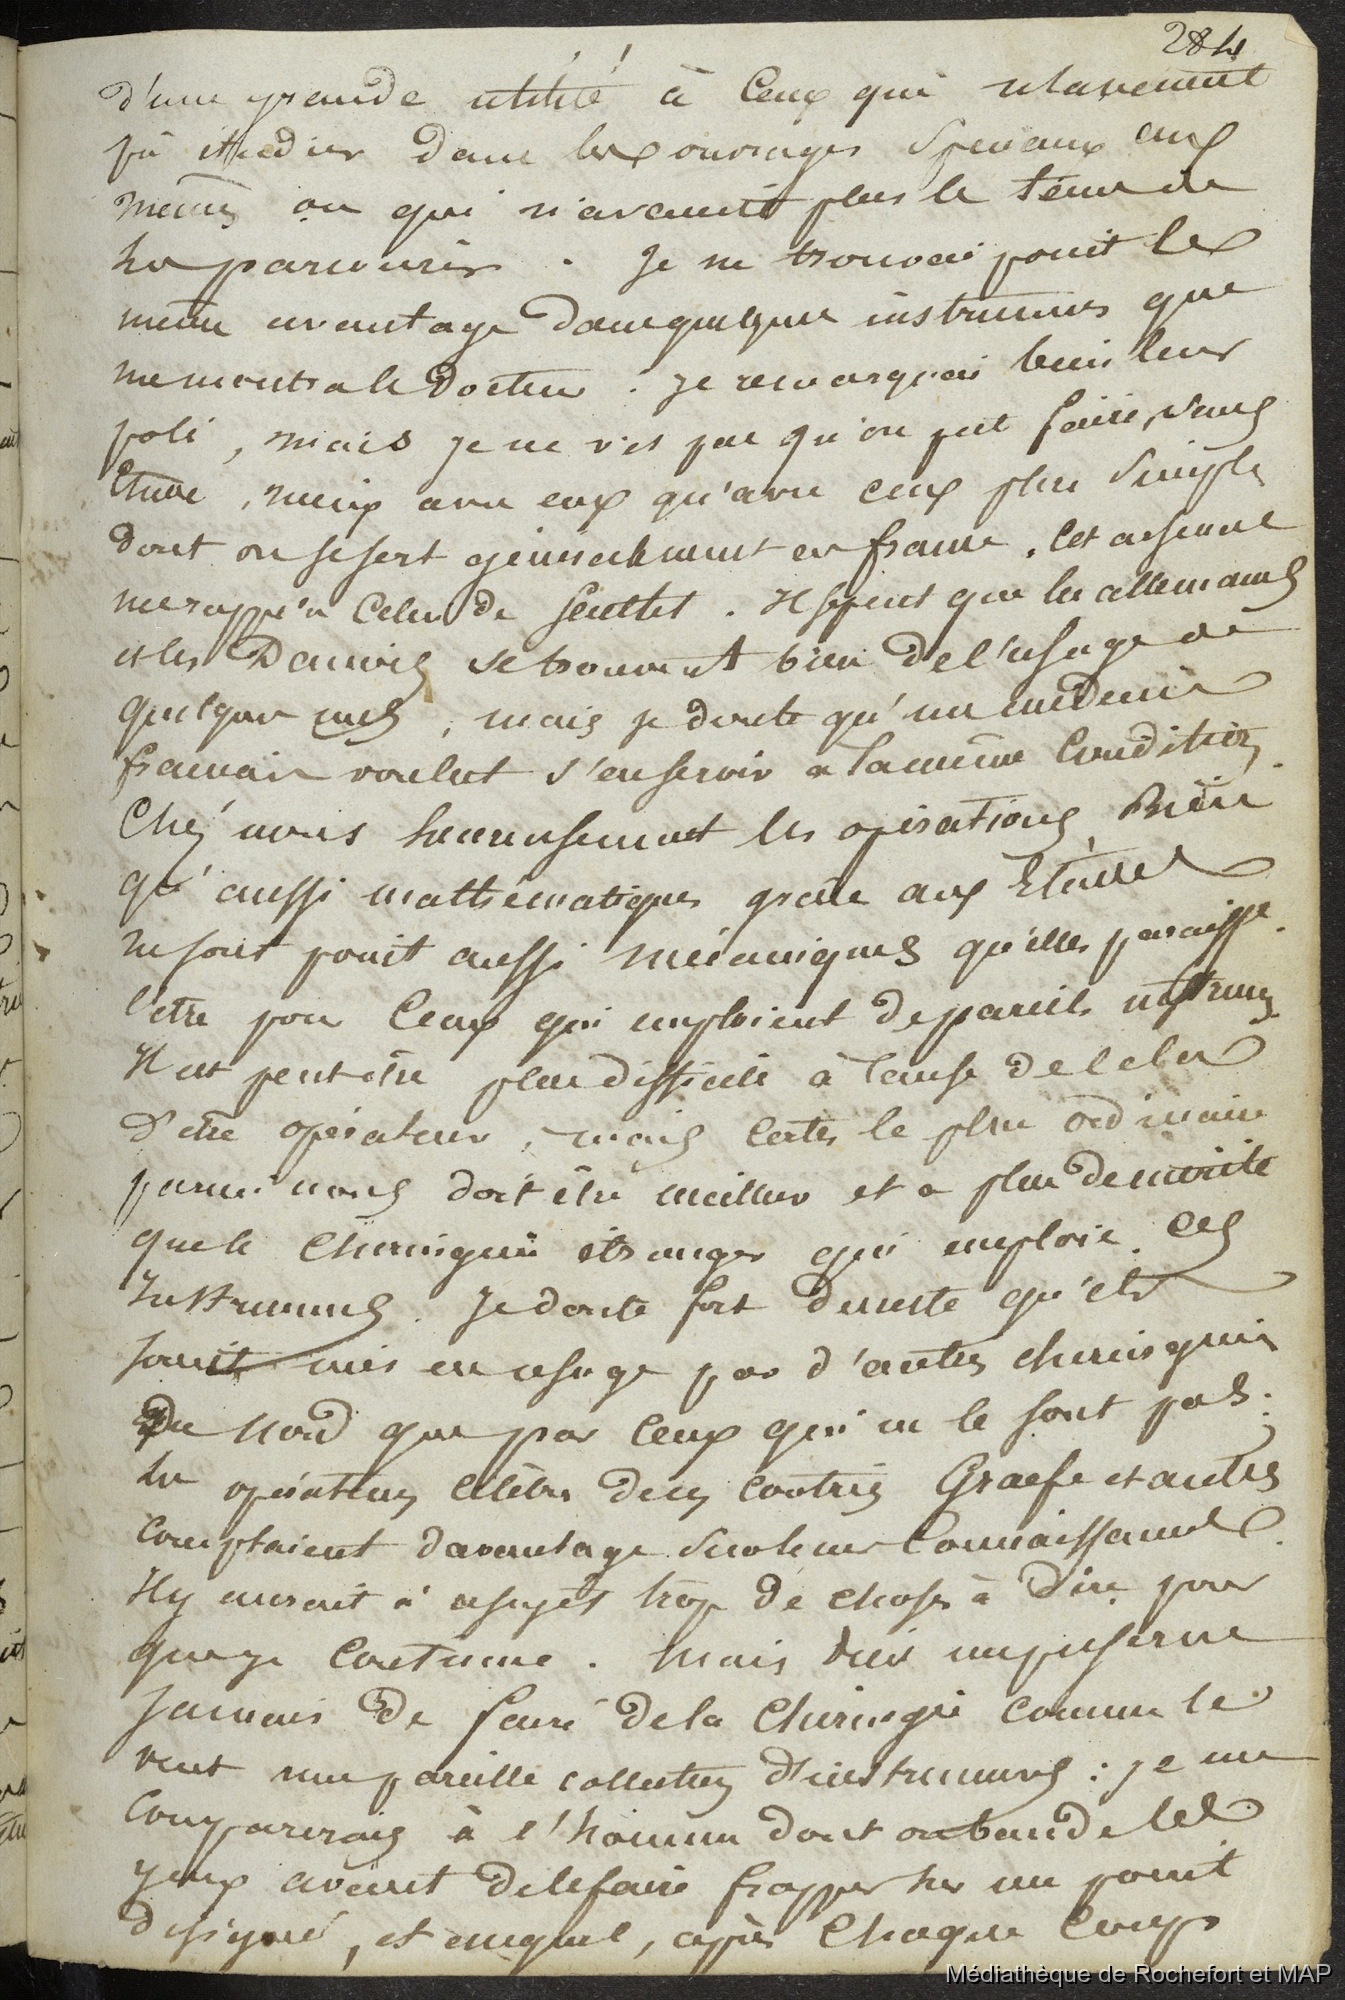 284
d'une grande utilité à Ceux qui n'avaient
pû etudier dans les ouvrages speciaux eux
memes ou qui n'avaient plus le tems de
les parcourir. Je ne trouvai point le
même avantage dans quelques instrumens que
me montra le Docteur. je remarquai bien leur
poli, mais je ne vis pas qu'on put faire, sans
Etude, mieux avec eux qu'avec ceux plus simples
dont on se sert généralement en france. Cet arsenal
me rappela Celui de Scultet. Il se peut que les allemands
et les Danois se trouvent bien de l'usage de
quelques uns, mais je doute qu'un médecin
francais voulut s'en servir à la même Condition.
Chéz nous heureusement les opérations, Bien
qu'aussi mathématiques grace aux Etudes
ne sont point aussi mécaniques qu'elles paraisse.
l'être pour Ceux qui emploient de pareils instrumens
Il est peut être plus difficile à Cause de Cela
d'être opérateur, mais Certes le plus ordinaire
parmi nous doit être meilleur et a plus de mérite
que le Chirurgien étranger qui emploie Ces
Instrumens. Je doute fort du reste qu'ils
soient mis en usage par d'autres chirurgiens
Du Nord que par Ceux qui ne le sont pas:
les opérateurs Célèbres de ces Contrées Graefe et autres
Comptaient davantage sur leurs Connaissances.
Il y aurait à ce sujet trop de choses à Dire pour
que je Continue. Mais Dieu me préserve
Jamais de faire de la Chirurgie comme le
veut une pareille collection d'instrumens: je me
Comparerais à l'homme dont on bande les
yeux avant de le faire frapper sur un point
désigné, et auquel, après Chaque Coup
Médiathèque de Rochefort et MAP